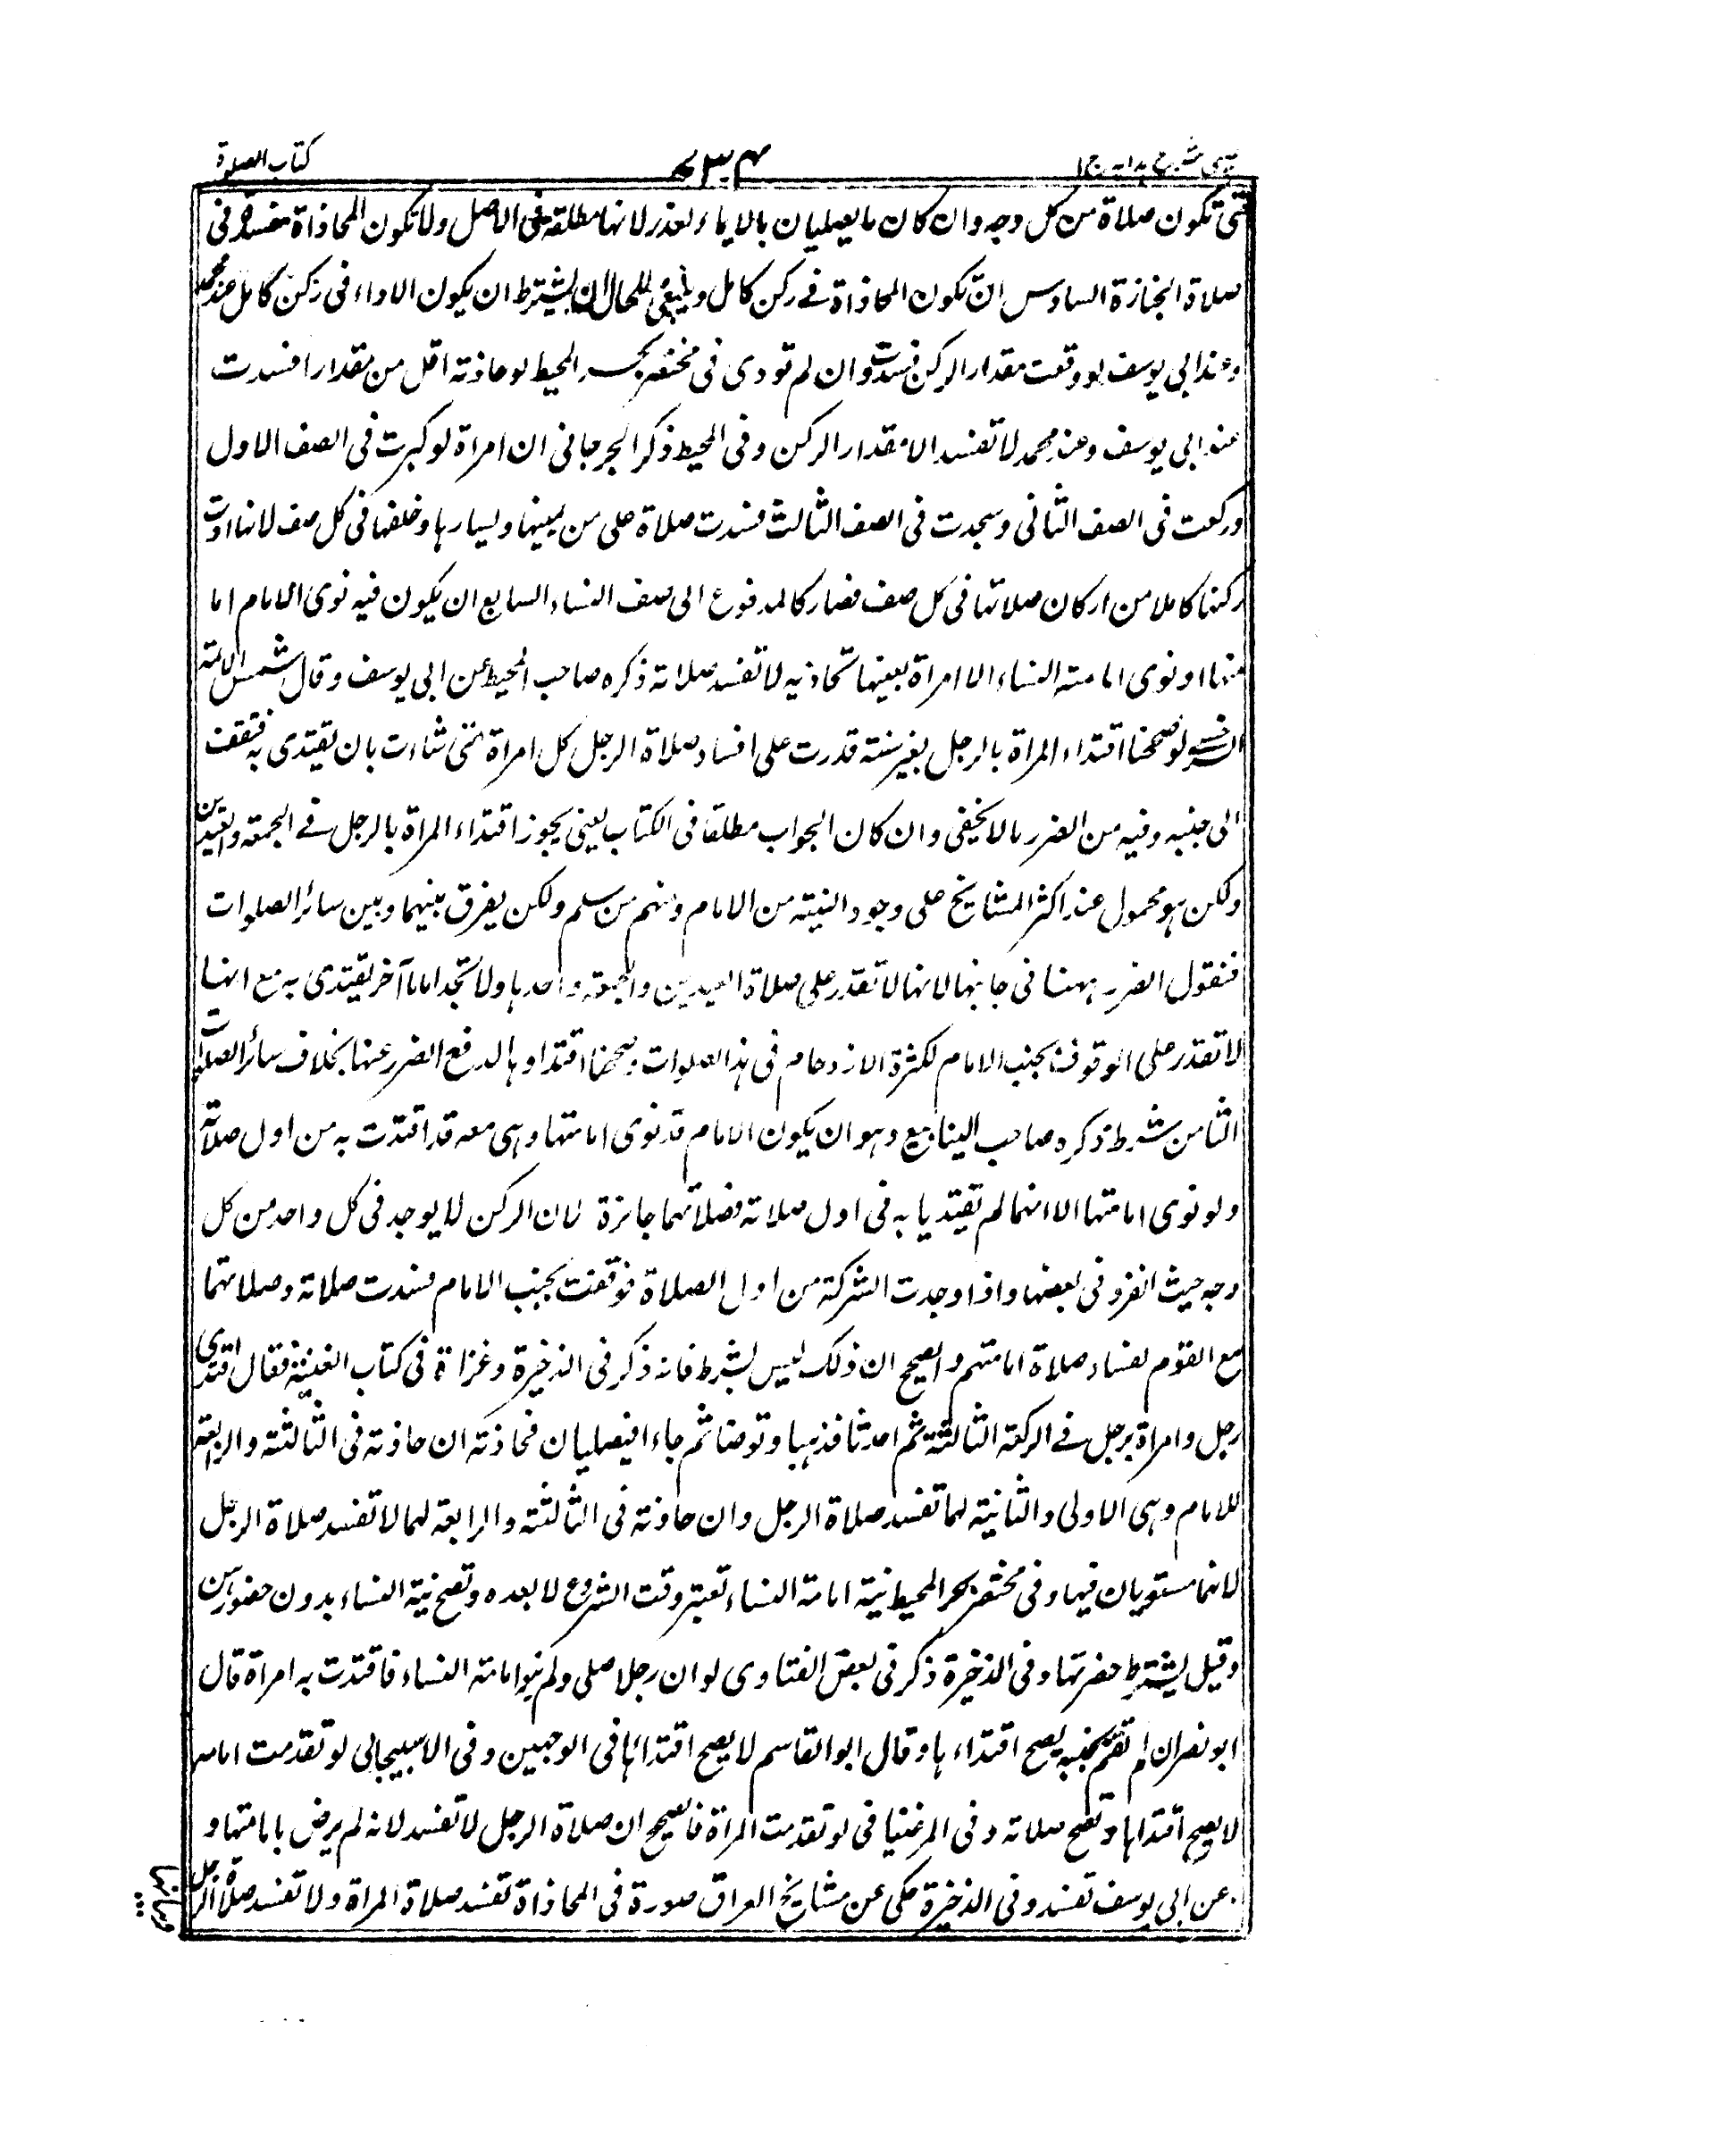 كتاب الصلوة
حتى تكون صلاة من كل وجه وان كان ما يصليان بالايماء لعذر لانها مطلقة فى الاصل ولا تكون المحاذاة مفسدة فى
صلاة الجنازة السادس ان تكون المحاذاة فى ركن كامل وينبغى للحال ان يشترط ان يكون الاداء فى ركن كامل عند محمد
وعند ابى يوسف لو وقعت مقدار الركن فسدت وان لم تودى فى مختصر بحر المحيط لو حاذته اقل من مقدار افسدت
عند ابى يوسف وعند محمد لا تفسد الا مقدار الركن وفى المحيط ذكر الجرجانى ان امراة لو كبرت فى الصف الاول
وركعت فى الصف الثانى وسجدت فى الصف الثالث فسدت صلاة على من يمينها ويسارها وخلفها فى كل صف لانها ادت
ركنا كاملا من اركان صلاتها فى كل صف فصار كالمدفوع الى صف النساء السابع ان يكون فيه نوى الامام اما
منها او نوى امامته النساء الا امراة بعينها تحاذيه لا تفسد صلاته ذكره صاحب المحيط عن ابى يوسف وقال شمس الائمة
السرخسى لو صححنا اقتداء المراة بالرجل بغير نية قدرت على افساد صلاة الرجل كل امراة متى شاءت بان يقتدى به فتقف
الى جنبه وفيه من الضرر ما لا يخفى وان كان الجواب مطلقا فى الكتاب يعنى يجوز اقتداء المراة بالرجل فى الجمعة والعيدين
ولكن هو محمول عند اكثر المشايخ على وجود النية من الامام ومنهم من سلم ولكن يفرق بينهما وبين سائر الصلوات
فنقول الضرر ههنا فى جانبها لانها لا تقدر على صلاة العيدين والجمعة واحدها ولا تجد اماما آخر يقتدى به مع انها
لا تقدر على الوقوف بجنب الامام لكثرة الازدحام فى هذا الصلوات وصححنا اقتداوها لدفع الضرر عنها بخلاف سائر الصلوات
الثامن شرط ذكره صاحب الينابيع وهو ان يكون الامام قد نوى امامتها وهى معه قد اقتدت به من اول صلاته
ولو نوى امامتها الا انهما لم يقتديا به فى اول صلاته فصلاتهما جائزة لان الركن لا يوجد فى كل واحد من كل
وجه حيث انفرد فى بعضها واذا وجدت الشركة من اول الصلاة فوقفت بجنب الامام فسدت صلاته وصلاتهما
مع القوم لفساد صلاة امامتهم والصحيح ان ذلك ليس بشرط فانه ذكر فى الذخيرة وعزاه فى كتاب الغنية فقال اقتدى
رجل وامراة برجل فى الركعة الثالثة ثم احدثا فذهبا وتوضا ثم جاءا فيصليان فحاذته ان حاذته فى الثالثة والرابعة
للامام وهى الاولى والثانية لهما تفسد صلاة الرجل وان حاذته فى الثالثة والرابعة لهما لا تفسد صلاة الرجل
لانهما مستويان فيها وفى مختصر بحر المحيط نية امامة النساء تعتبر وقت الشروع لا بعده وتصح نية النساء بدون حضورهن
وقيل يشترط حضرتها وفى الذخيرة ذكر فى بعض الفتاوى لو ان رجلا صلى ولم ينوا امامة النساء فاقتدت به امراة قال
ابو نصر ان لم تقم بجنبه يصح اقتداءها وقال ابو القاسم لا يصح اقتداؤها فى الوجهين وفى الاسبيجابى لو تقدمت امامها
لا يصح اقتداها وتصح صلاته وفى المرغينانى لو تقدمت المراة فالصحيح ان صلاة الرجل لا تفسد لانه لم يرض بامامتها و
عن ابى يوسف تفسد وفى الذخيرة حكى عن مشايخ العراق صورة فى المحاذاة تفسد صلاة المراة ولا تفسد صلاة الرجل